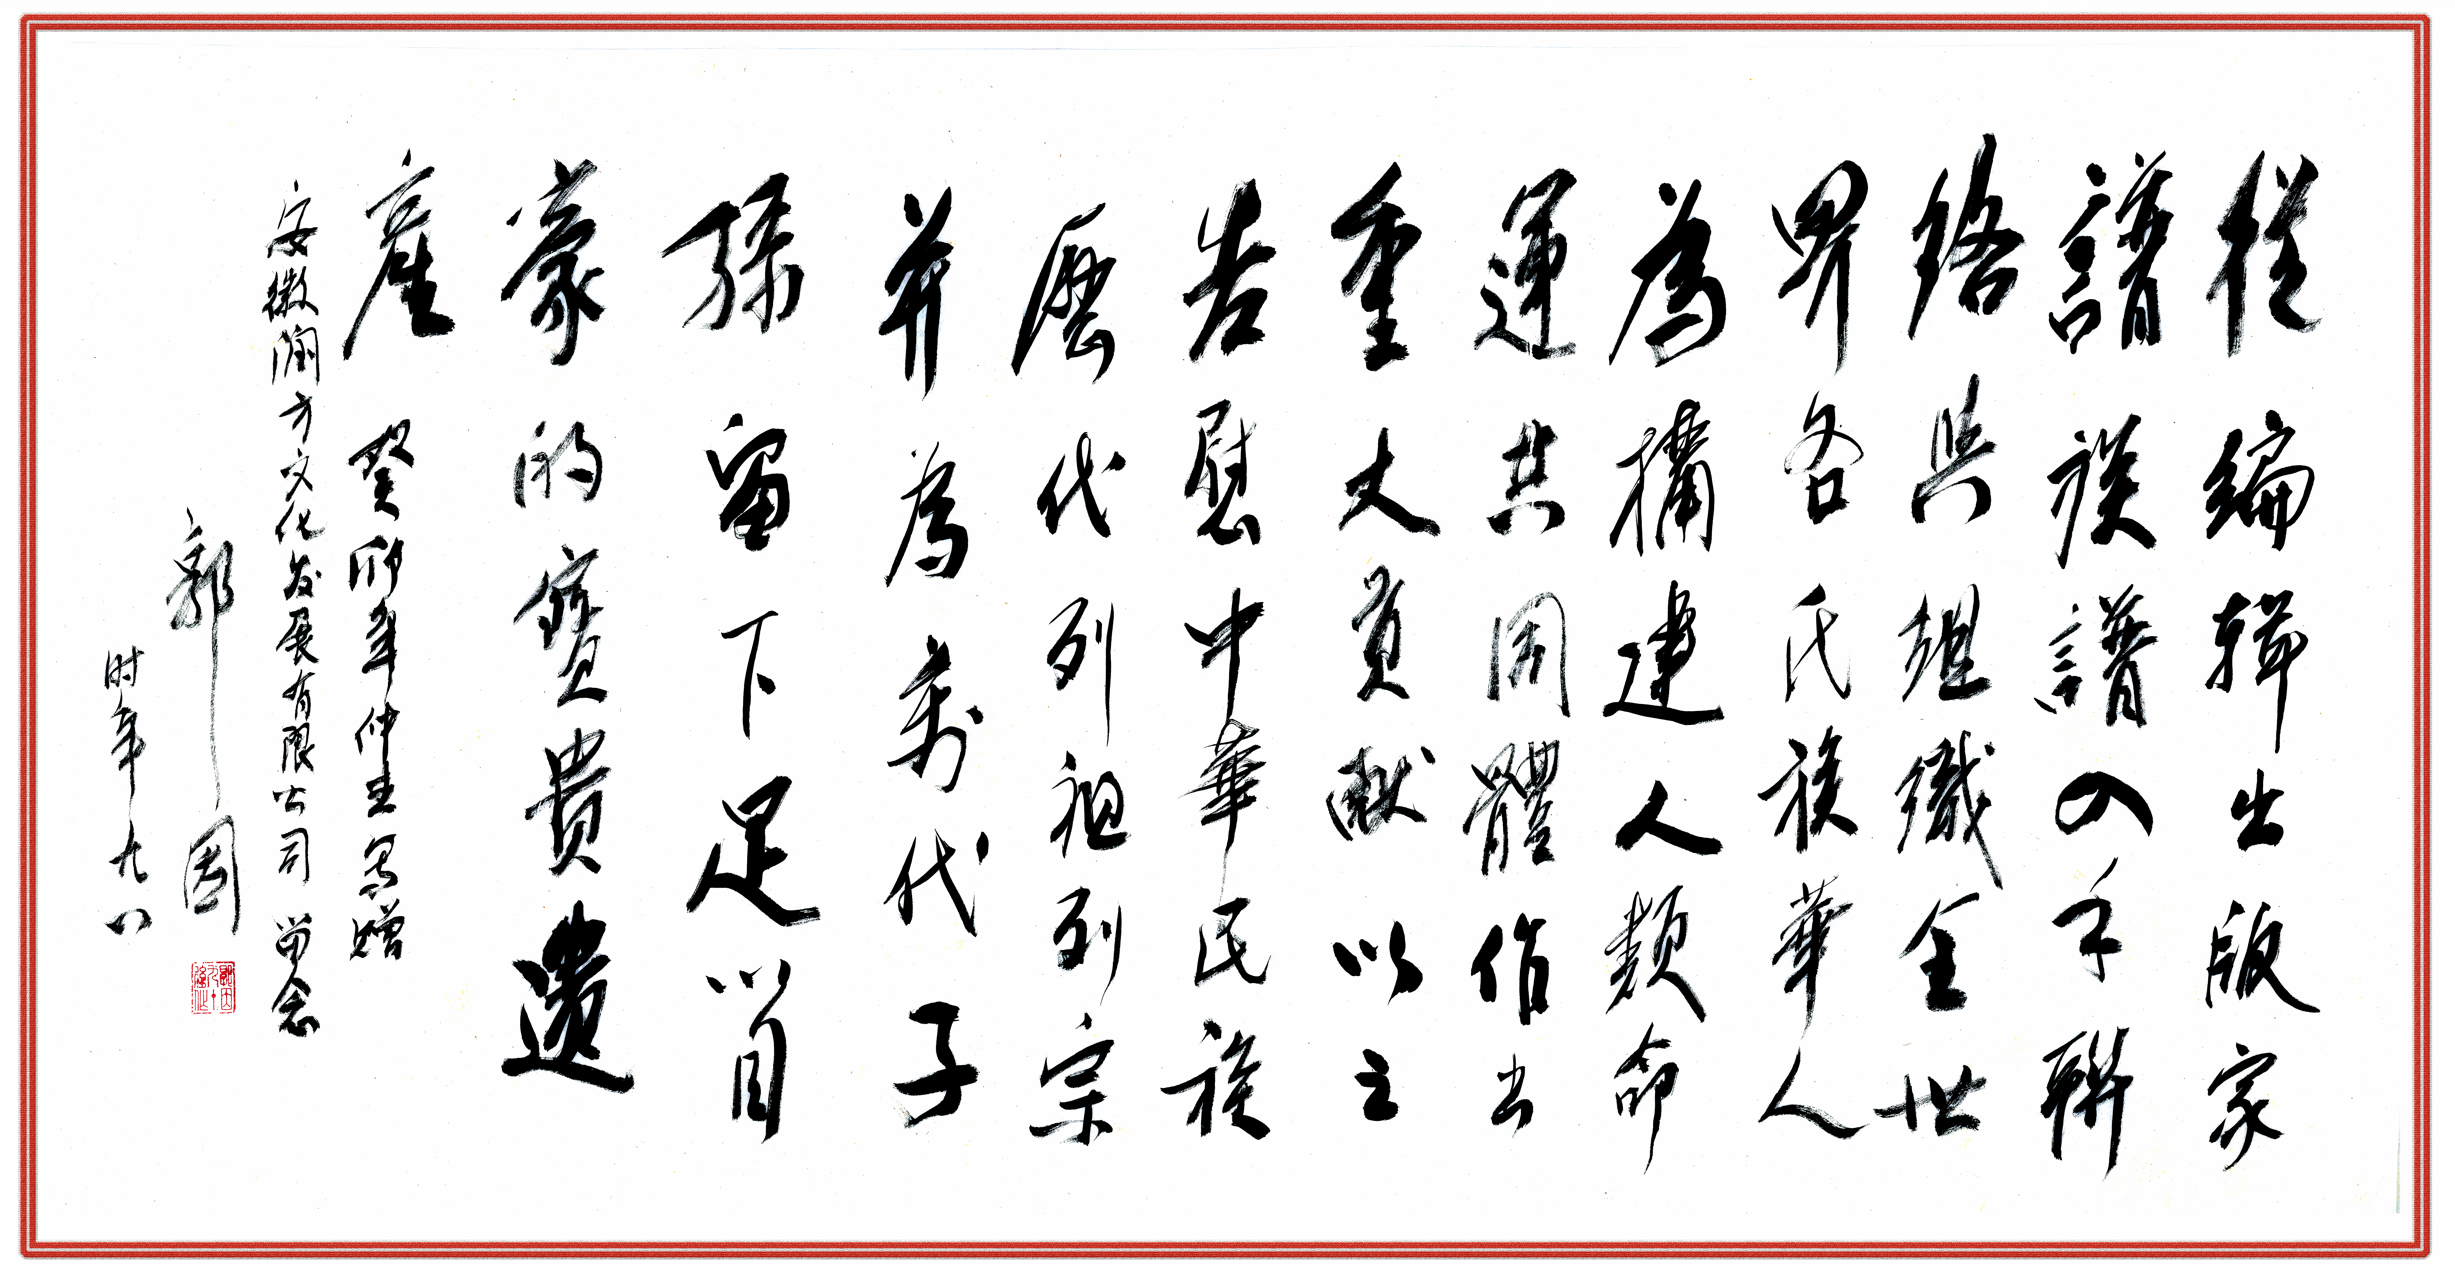 從編輯出版家
譜族譜入手聯
絡與組織全世
界各氏族華人
為構建人類命
運共同體作出
重大貢献以之
告慰中華民族
歷代列祖列宗
并為萬代子
孫留下足以自
豪的寶貴遺
產 癸卯年仲 写赠
安徽 方文化发展有限公司 留念
郭因
时年九八